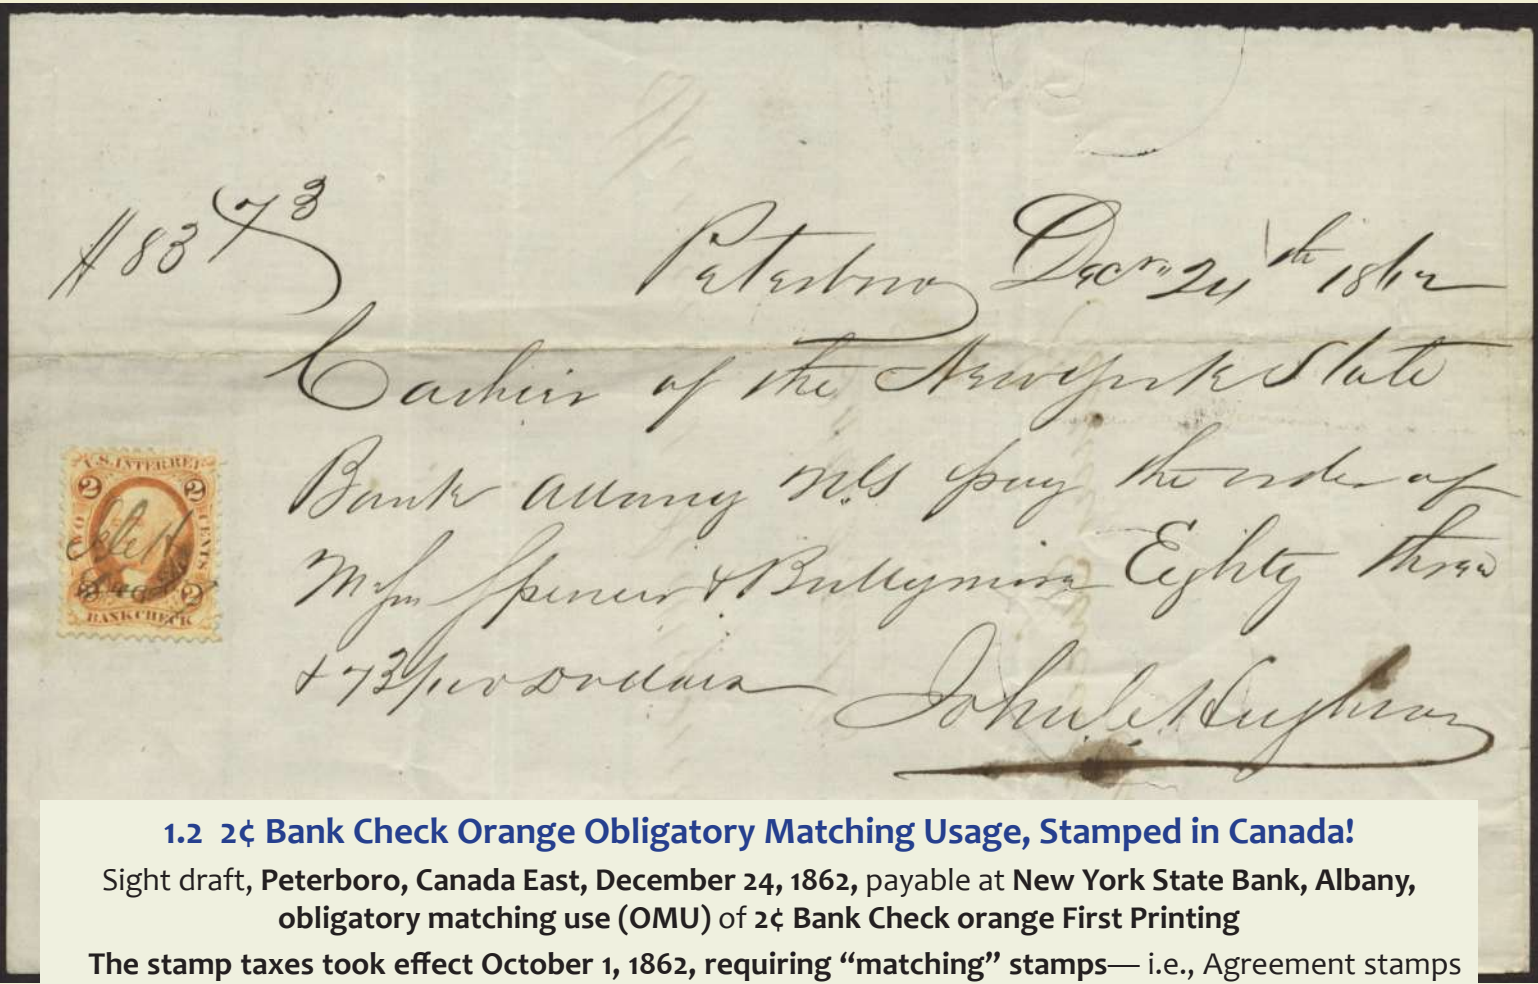 $83 73
Peterboro Decr. 24th 1862
Cashier of the New York State
Bank Albany N.Y pay the order of
Spencer & Eighty three
& 73/100 Dollars
John C Hughson
U.S. INTER REV
2 2
TWO CENTS
2 2
BANK CHECK
1.2 2¢ Bank Check Orange Obligatory Matching Usage, Stamped in Canada!
Sight draft, Peterboro, Canada East, December 24, 1862, payable at New York State Bank, Albany,
obligatory matching use (OMU) of 2¢ Bank Check orange First Printing
The stamp taxes took effect October 1, 1862, requiring “matching” stamps— i.e., Agreement stamps